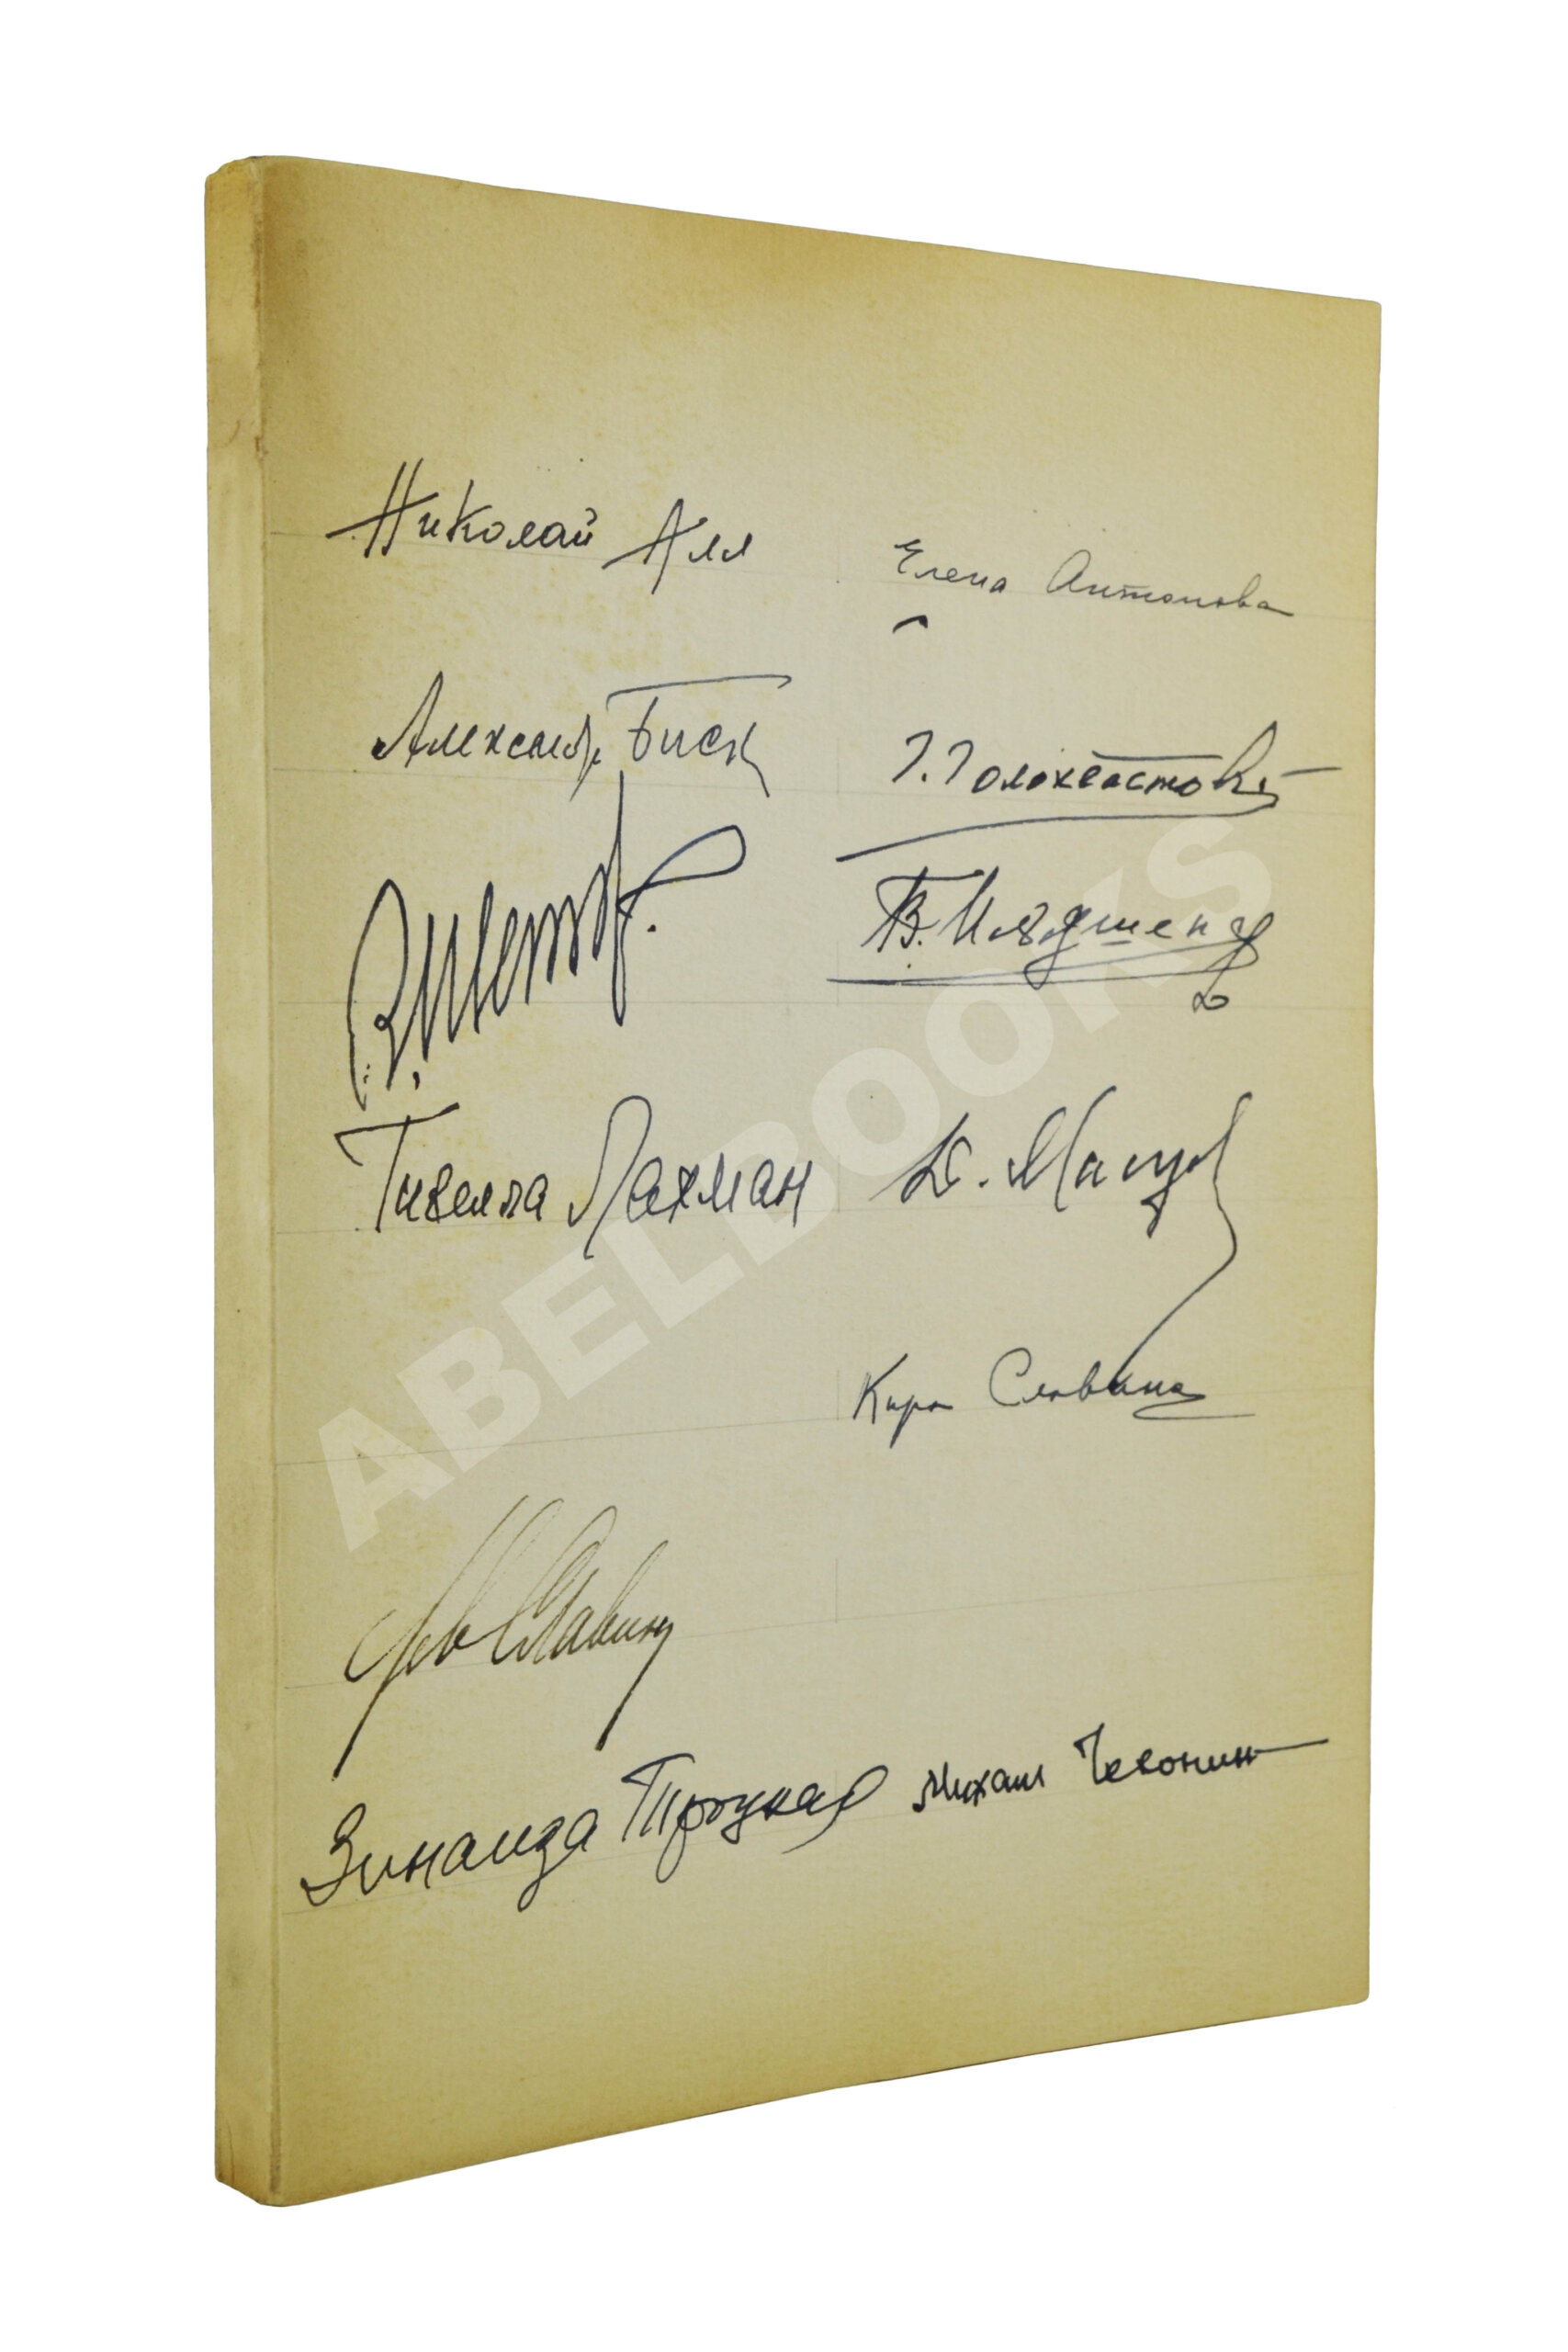 Николай Алл
Елена Антонова
Александр Биск
Г. Голохвастов
В. Ильяшенко
Гизелла Лахман
Д. Магула
Кира Славина
Лев Славин
Зинаида Троцкая
Михаил Чехонин
ABELBOOKS